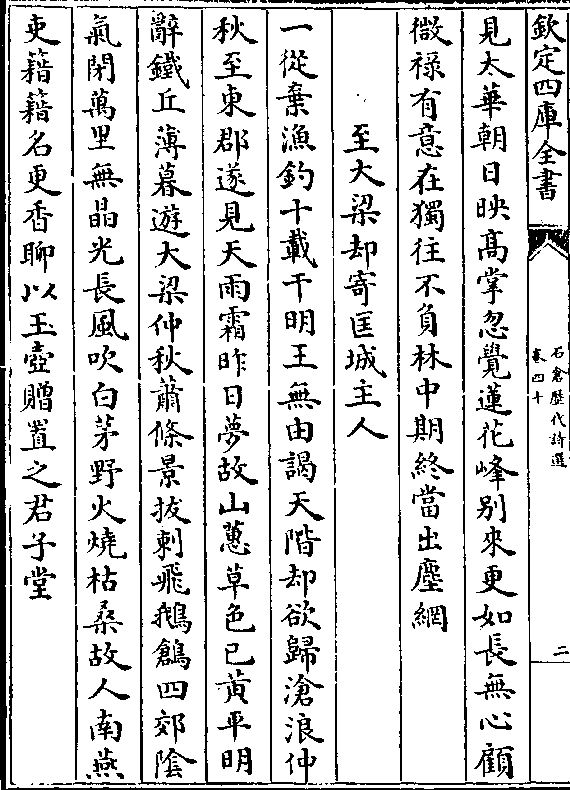 欽定四庫全書
石倉歷代詩選
卷四十
二
見太華朝日映高掌忽覺蓮花峰别來更如長無心顧
微禄有意在獨往不負林中期終當出塵網
至大梁却寄匡城主人
一從棄漁釣十載干明王無由謁天階却欲歸滄浪仲
秋至東郡遂見天雨霜昨日夢故山蕙草色已黄平明
辭鐵丘薄暮遊大梁仲秋蕭條景拔剌飛鵝鶬四郊陰
氣閉萬里無晶光長風吹白茅野火燒枯桑故人南燕
吏籍籍名更香聊以玉壺贈置之君子堂